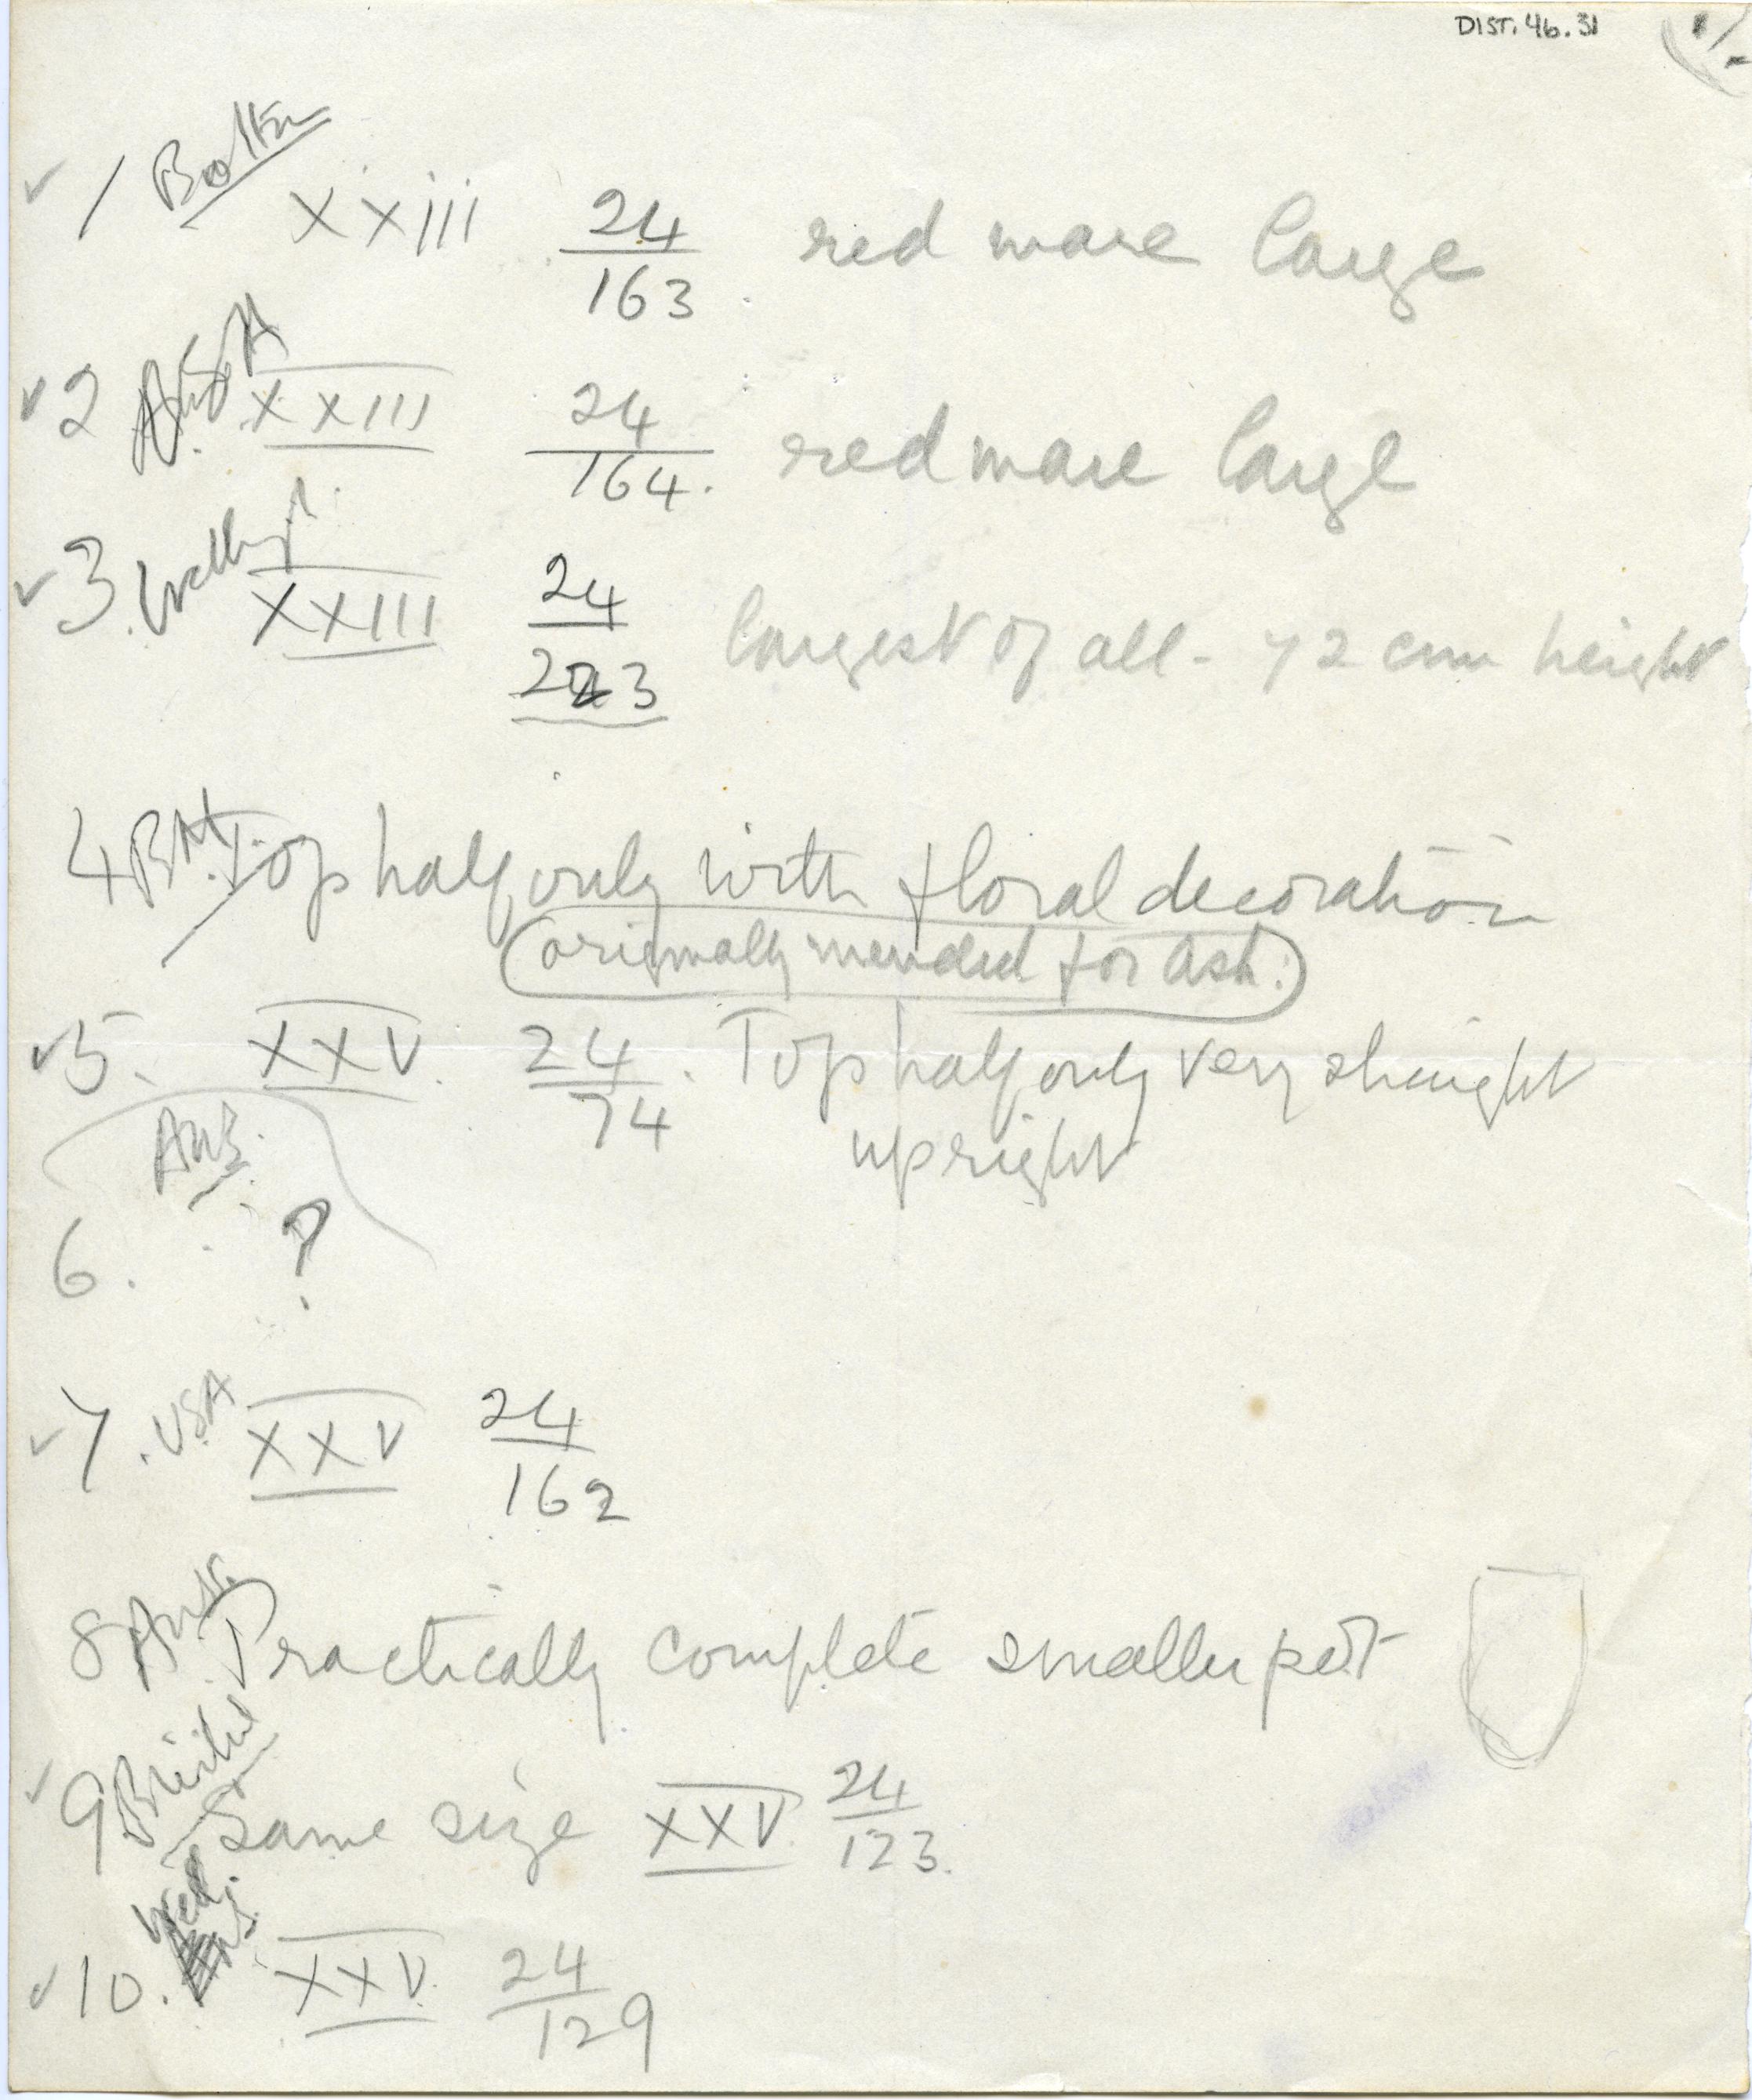 DIST. 46.31
1/-
1 Bolton xxiii 24/163. red ware large
2 USA XXIII 24/164. red ware large
3. XXIII 24/223 largest of all - 72 cm height
4 BM. Top half only with floral decoration
(originally mended for Ash.)
5. XXV. 24/74. Top half only very straight
upright
Aus.
6. ?
7. USA XXV 24/162
8 Aust. Practically complete smaller pot
9 Bristol Same size XXV 24/123.
Well.
10. XXV. 24/129